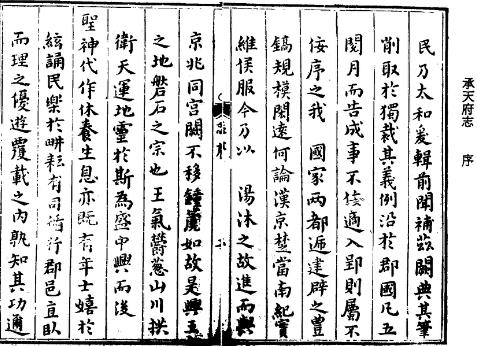 承天府志　序
民乃太和爰輯前聞補茲闕典其筆
削取於獨裁其義例沿於郡國凡五
閱月而告成事不佞適入郢則屬不
佞序之我　國家兩都遞建辟之豐
鎬規模閎遠何論漢京楚當南紀實
維侯服今乃以　湯沐之故進而與
京兆同宫闕不移鍾簴如故是興王
之地磐石之宗也王氣鬱蔥山川拱
衛天運地靈於斯為盛中興而後
聖神代作休養生息亦既有年士嬉於
絃誦民樂於畊耘有司循行郡邑直臥
而理之優遊覆載之內孰知其功邇